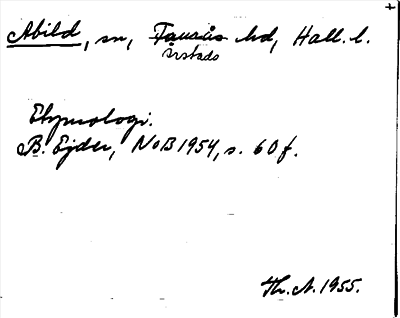 Abild, sn, Fauås hd, Hall. l.
Årstads
Etymologi.
B. Ejder, NoB 1954, s. 60 f.
Th. A. 1955.